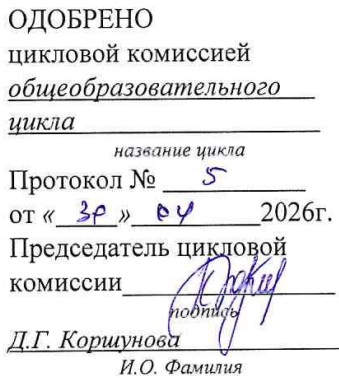 ОДОБРЕНО
цикловой комиссией
общеобразовательного
цикла
название цикла
Протокол № 5
от « » 04 2026г.
Председатель цикловой
комиссии
подпись
Д.Г. Коршунова
И.О. Фамилия